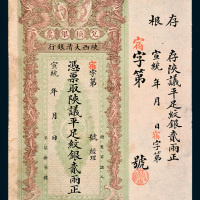 存根
存陝議平足紋銀貳兩正
宣統 年 月 日 宿字第
宿字第 號
陝西大清銀行
宿字第 號
憑票取陝議平足紋銀貳兩正
宣統 年 月 日
經理